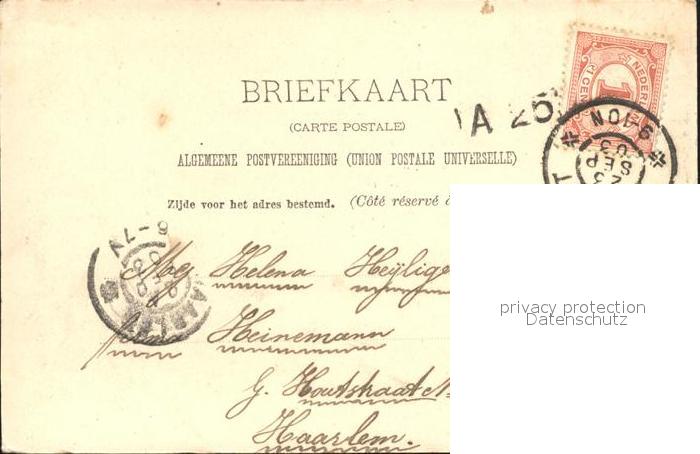 BRIEFKAART
(CARTE POSTALE)
ALGEMEENE POSTVEREENIGING (UNION POSTALE UNIVERSELLE)
Zijde voor het adres bestemd. (Côté réservé à
NEDER
1
CENT
A 25
9-10N
23
SEP
03
6-7N
Mej Helena Heÿlige
Heinemann
G. Houtstraat N
Haarlem.
privacy protection
Datenschutz